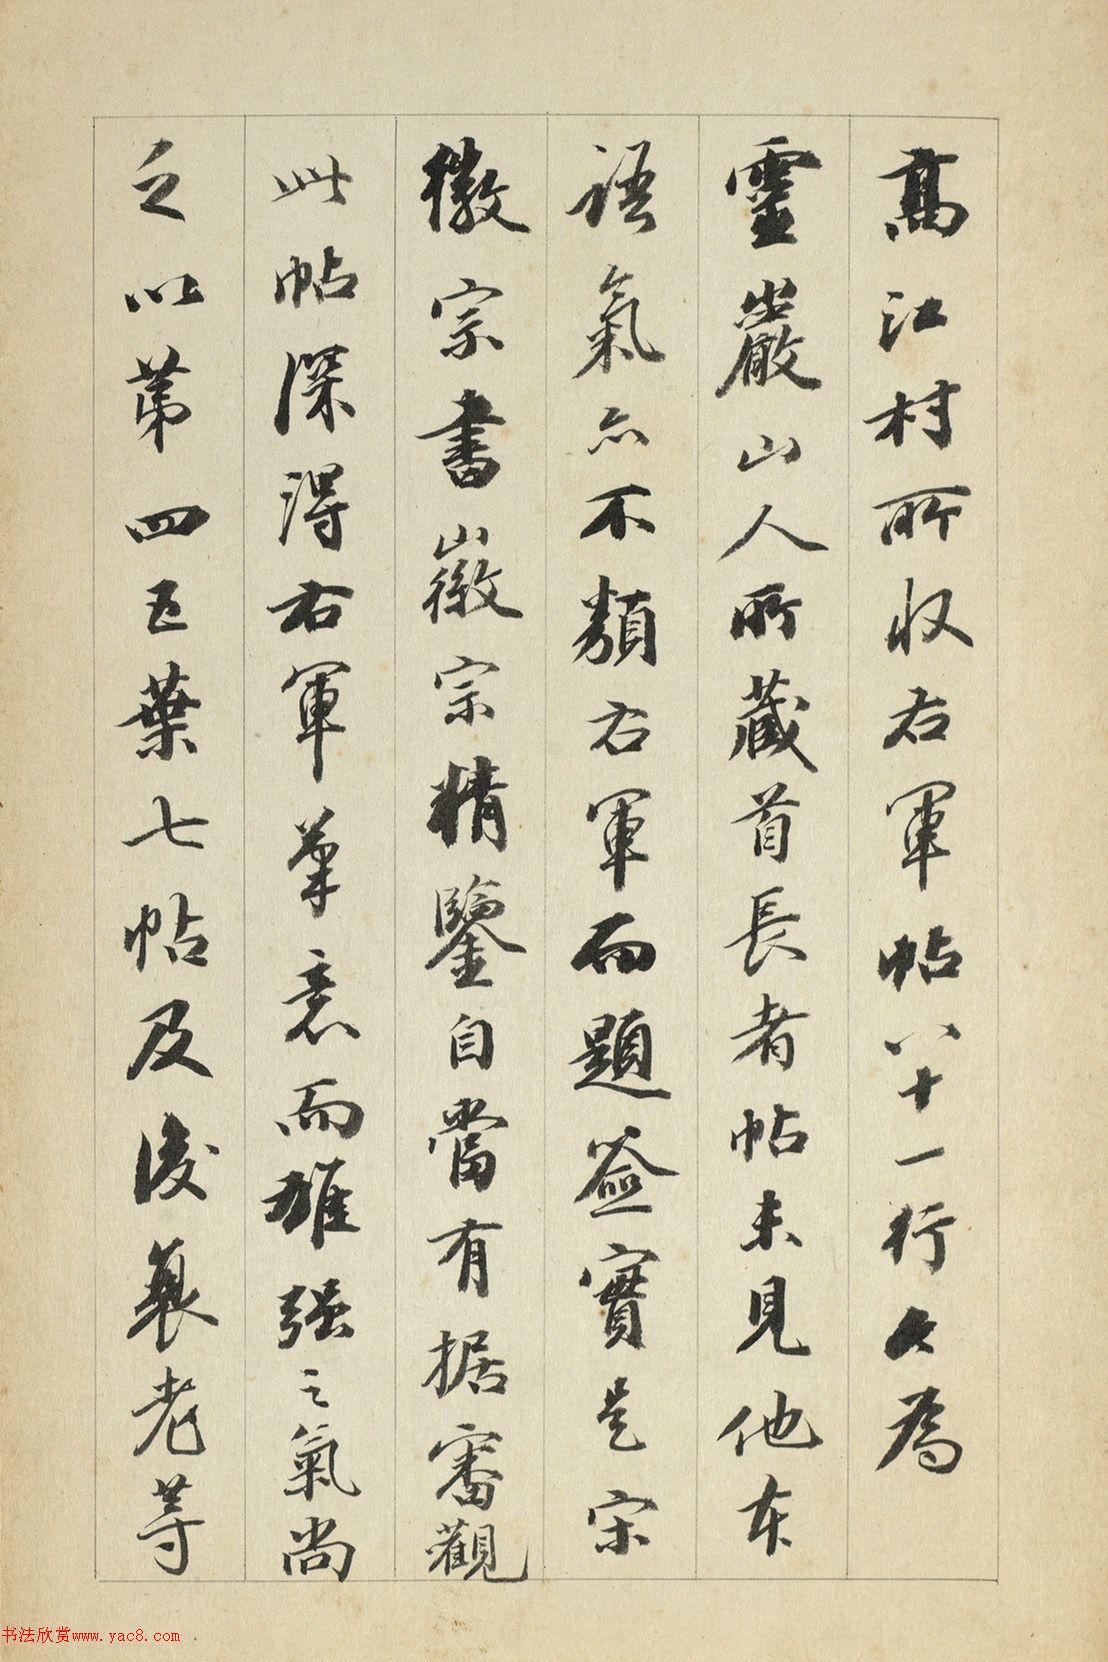 高江村所收右軍帖八十一行久爲
靈巖山人所藏首長者帖未見他本
語氣亦不類右軍而題簽實是宋
徽宗書徽宗精鑒自當有据審觀
此帖深得右軍筆意而雄强之氣尚
之以第四五葉七帖及後蓑老等
书法欣赏www.yac8.com